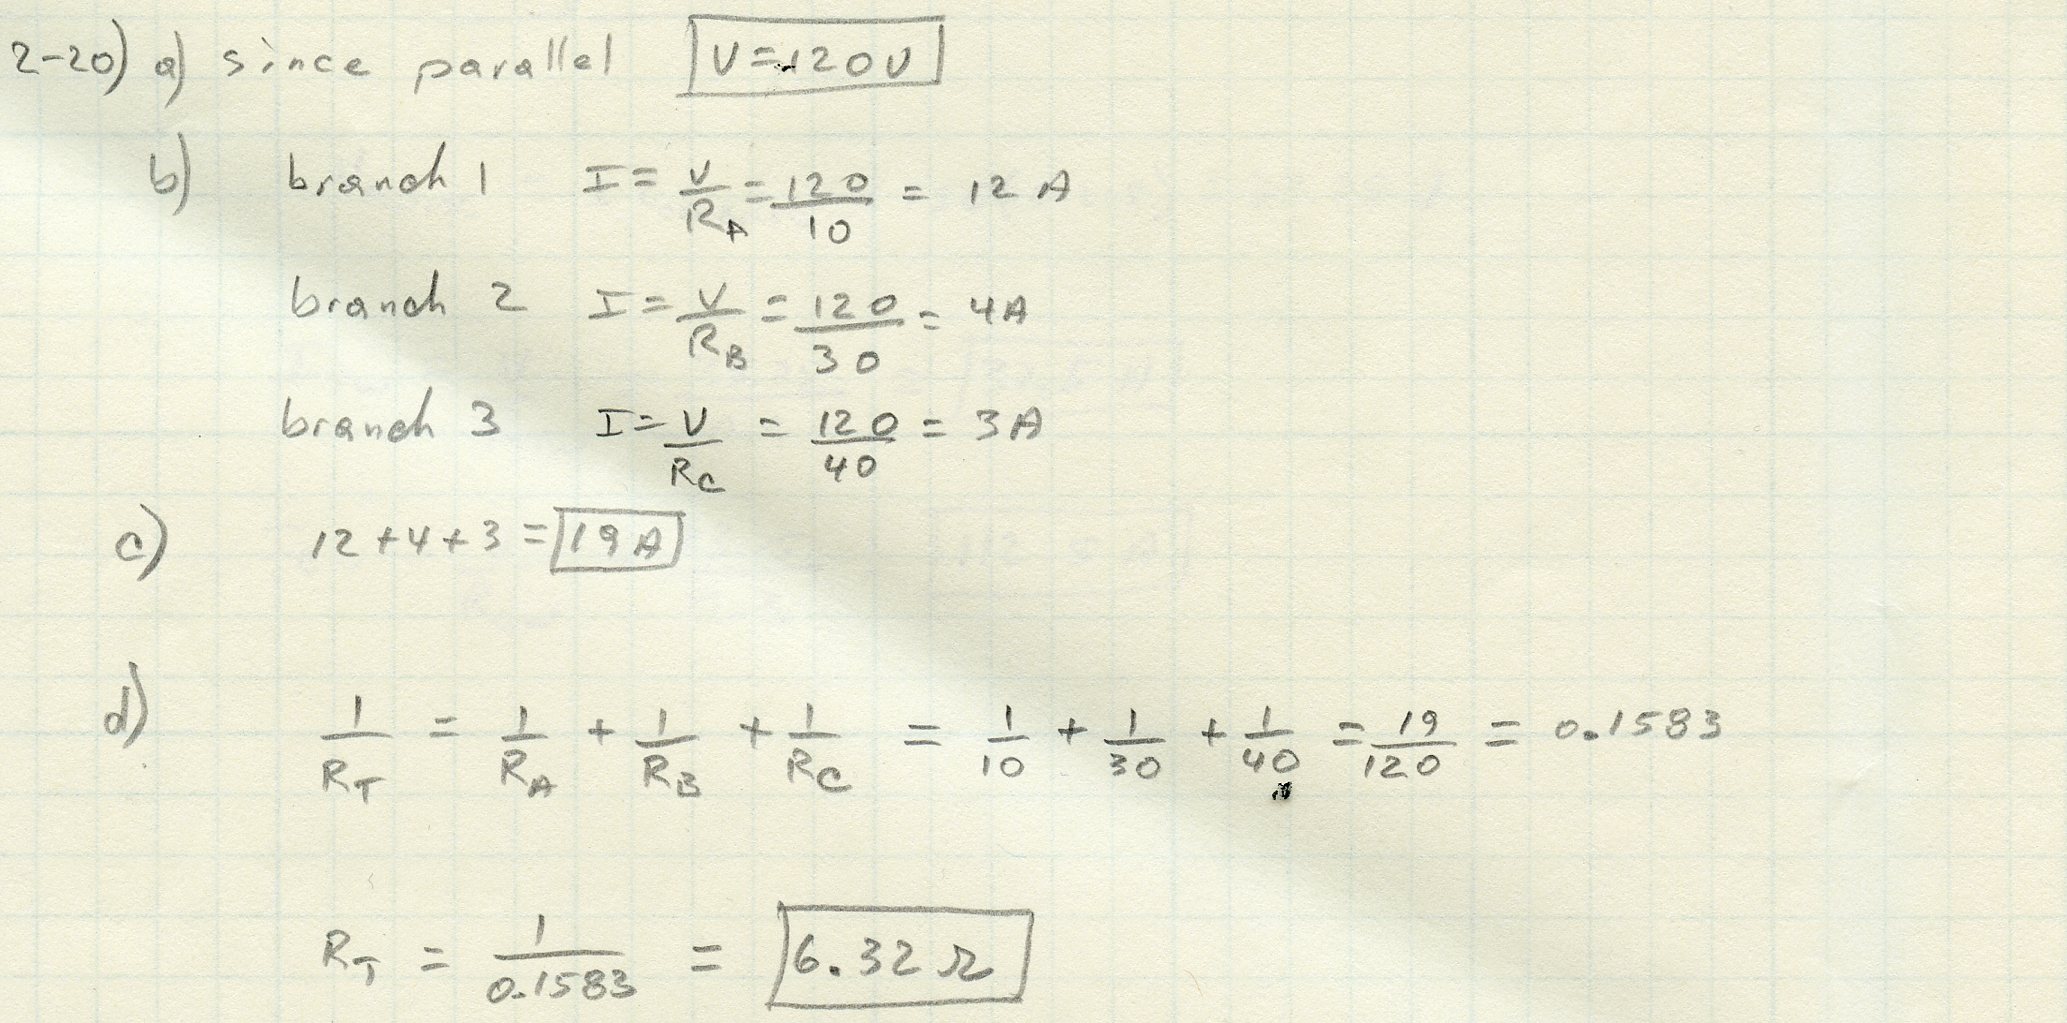 2-20) a) since parallel V=120V
b) branch 1 I = V/R_A = 120/10 = 12 A
branch 2 I = V/R_B = 120/30 = 4A
branch 3 I = V/R_C = 120/40 = 3A
c) 12+4+3 = 19A
d) 1/R_T = 1/R_A + 1/R_B + 1/R_C = 1/10 + 1/30 + 1/40 = 19/120 = 0.1583
R_T = 1/0.1583 = 6.32 Ω